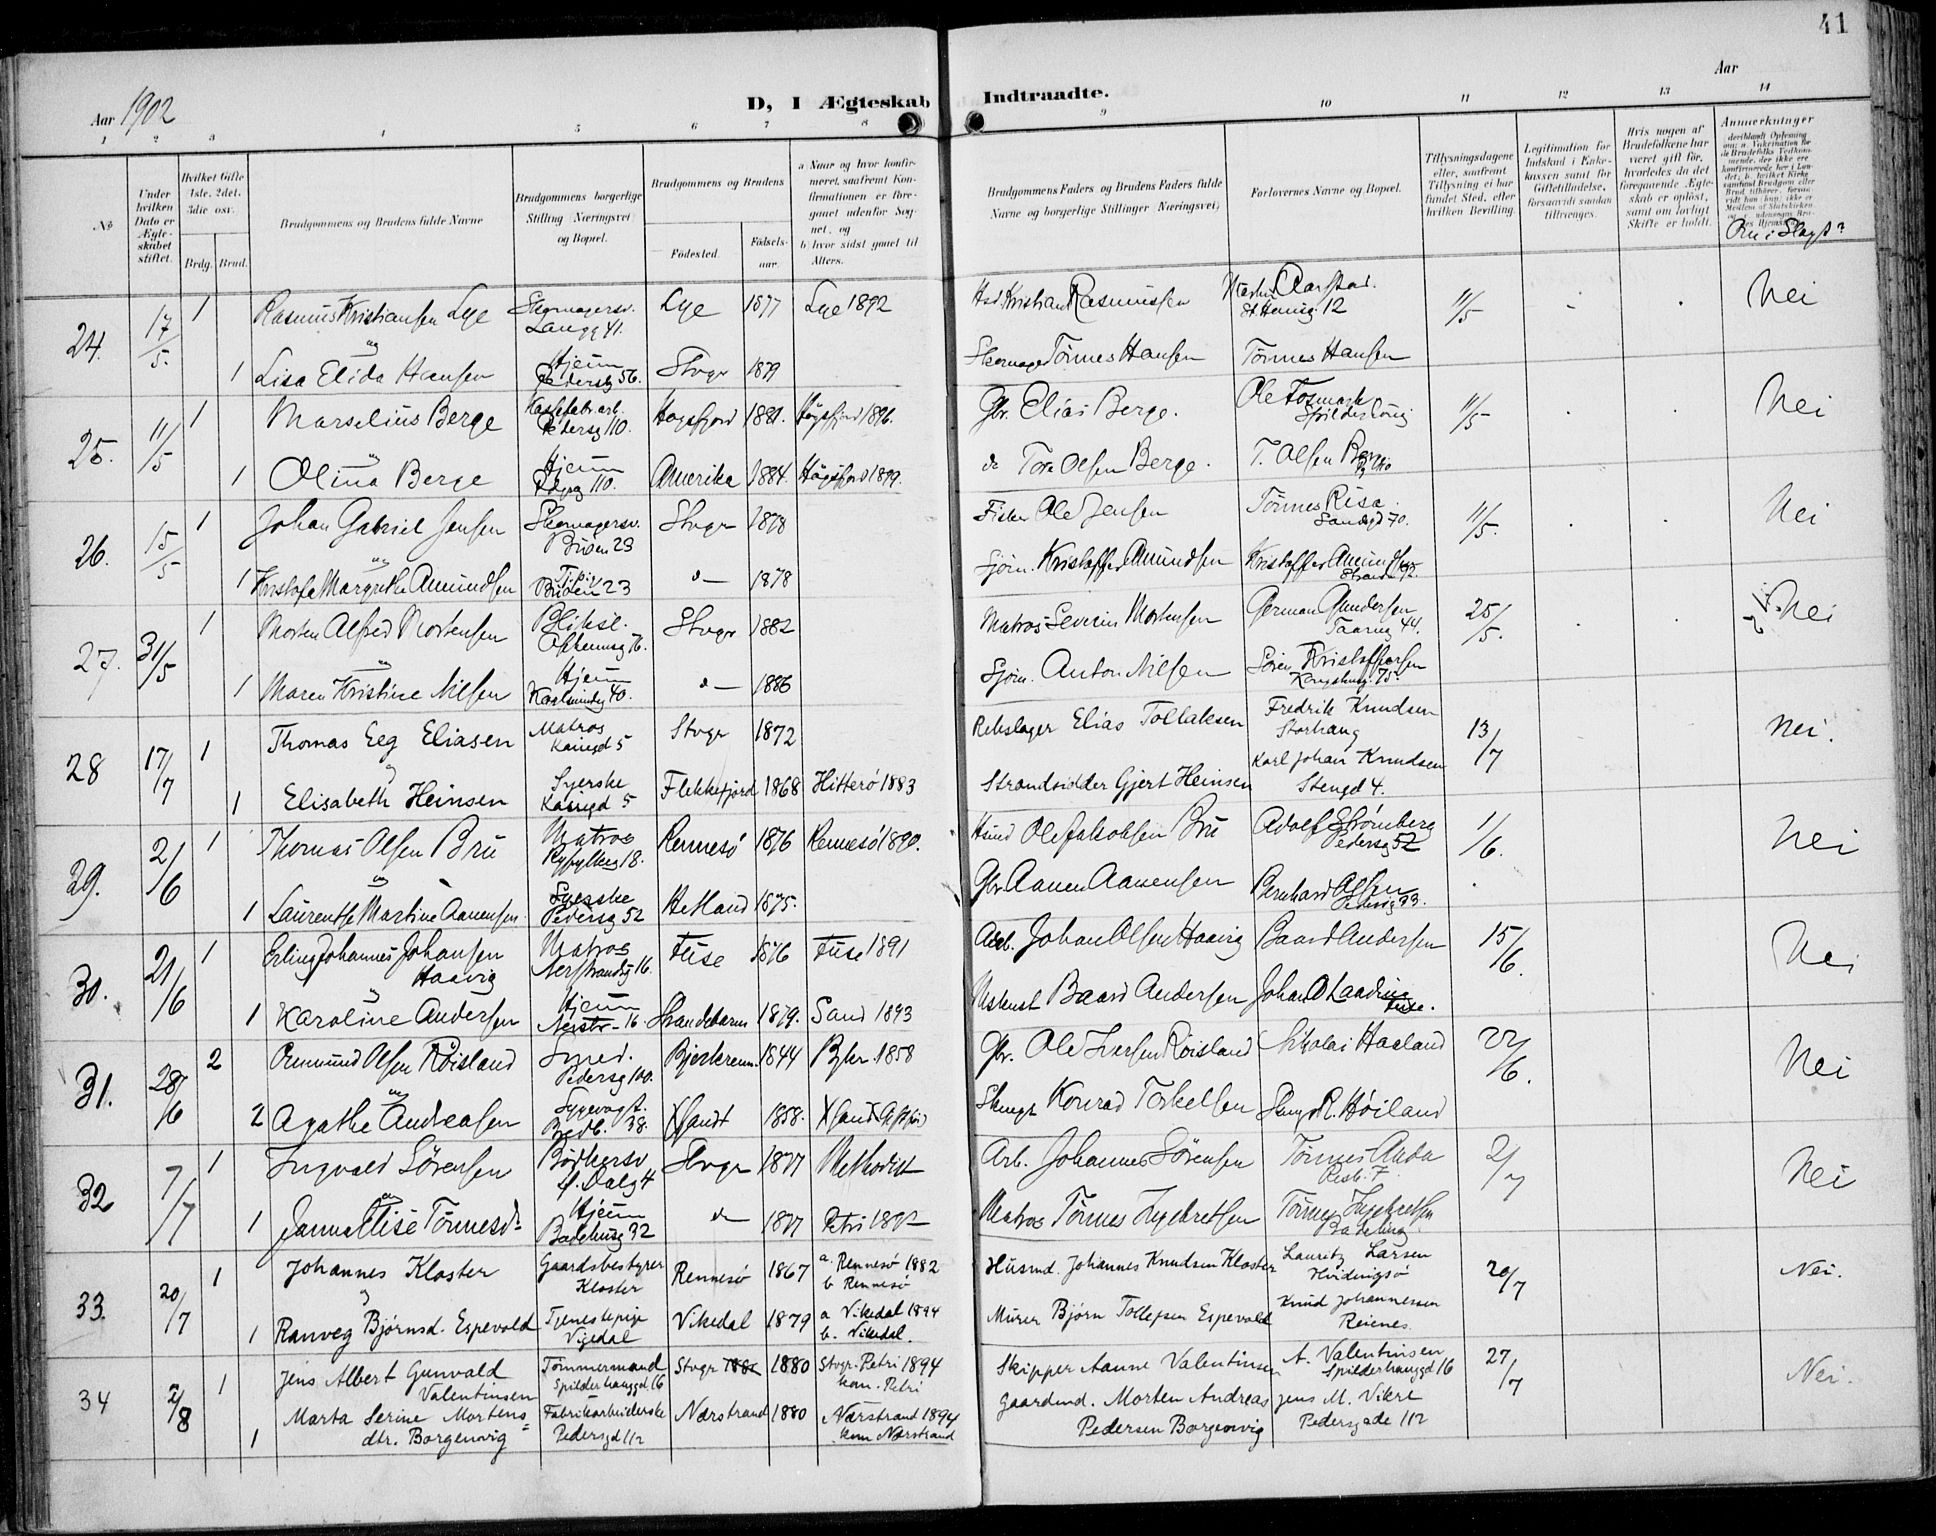 41
Aar 1902
D, I Ægteskab Indtraadte.
Aar
1 2 3 4 5 6 7 8 9 10 11 12 13 14
No
Under hvilken Dato er Ægteskabet stiftet.
Hvilket Gifte 1ste, 2det, 3die osv.
Brdg. Brud.
Brudgommens og Brudens fulde Navne
Brudgommens borgerlige Stilling (Næringsvei) og Bopæl.
Brudgommens og Brudens
Fødested
Fødselsaar.
a. Naar og hvor konfirmeret, saafremt Konfirmationen er foregaaet udenfor Sognet, og
b. hvor sidst gaaet til Alters.
Brudgommens Faders og Brudens Faders fulde Navne og borgerlige Stillinger (Næringsvei)
Forlovernes Navne og Bopæl.
Tillysningsdagene eller, saafremt Tillysning ei har fundet Sted, efter hvilken Bevilling.
Legitimation for Indskud i Enkekassen samt for Giftetilladelse, forsaavidt saadan tiltrænges.
Hvis nogen af Brudefolkene har været gift før, hvorledes da det foregaaende Ægteskab er opløst, samt om lovligt Skifte er holdt.
Anmærkninger
Om i Slægt?
24. 17/5. 1 Rasmus Kristiansen Lye Skomagersv. Langg 41. Lye 1877 Lye 1892 Hsd. Kristian Rasmussen Martin Aarstad. St Hansg. 12 11/5 Nei
og
1 Lisa Elida Hansen Hjem Pedersg 56. Stvgr 1879 Skomager Tönnes Hansen Tönnes Hansen
25. 11/5 1 Marselius Berge Kassefabr.arb. Pedersg 110. Högsfjord 1881. Högsfjord 1896. Gbr. Elias Berge. Ole Fosmark 11/5 Nei
og
1 Olina Berge Hjem Pedersg 110. Amerika 1884. Högsfjord 1899. do Tore Olsen Berge. T. Olsen Berge
26. 15/5 1 Johan Gabriel Jensen Skomagersv. 23 Stvgr 1878 Fisker Ole Jensen Tönnes Risa Sandsgd 70. 11/5. Nei
og
1 Margrethe Amundsen 23 do 1878 Sjöm. Kristoffer Amundsen Kristoffer Amundsen
27. 31/5 1 Morten Alfred Mortensen Bliksl. 76. Stvgr 1882 Matros Severin Mortensen German Gundersen Taarng 44. 25/5. Nei
og
1 Maren Kristine Nilsen Hjem Karlsmindeg 40. do 1886 Sjöm. Anton Nilsen Sören Kristoffersen Kongsbug 75
28 17/7 1 Thomas Eeg Eliasen Matros Kaingd 5 Stvgr 1872 Rebslager Elias Tollaksen Fredrik Knudsen Storhaug 13/7 Nei.
og
1 Elisabeth Heinsen Syerske Kaingd 5 Flekkefjord 1868 Hitterö 1883 Strandsidder Gjert Heinsen Karl Johan Knudsen Stengd 4.
29. 2/6 1 Thomas Olsen Bru Matros Ryfylkeg 18. Rennesö 1876 Rennesö 1890. Husmd Ole Jakobsen Bru Adolf Strömberg Pedersg 52 1/6. Nei
og
1 Laurentse Martine Aanensen Syerske Pedersg 52 Hetland 1875. Gbr Aanen Aanensen Bernhard Olsen Pedersg 33.
30. 21/6 1 Erling Johannes Johansen Haavig Matros Nerstrandg 16. Fuse 1876 Fuse 1891 Arb. Johan Olsen Haavig Baard Andersen 15/6. Nei
og
1 Karoline Andersen Hjem Nerstr- 16. Strandebarm 1879. Sand 1893 Baard Andersen Johan O Haavig Fuse.
31. 28/6 2 Omund Olsen Röisland Smed. Pedersg 100. Bjerkreim. 1844 Bykr. 1858 Gbr. Ole Iversen Röisland Nikolai Haaland 22/6. Nei
og
2 Agathe Andreasen Sygevogt. Bredb. 38. Xsand 1858. Xsand Skrægs Konrad Torkelsen R. Höiland
32 7/7 1 Ingvald Sörensen Bödkersv Ø. Dalg 4 Stvgr 1877 Methodist Arb. Johannes Sörensen Tönnes Anda 7 2/7 Nei
og
1 Janna Elise Tönnesdr Hjem Badehusg 32 do 1877 Petri 1892 Matros Tönnes Ingebretsen Tönnes Ingebretsen Badehusg.
33. 20/7 1 Johannes Kloster Gaardsbestyrer Kloster Rennesö 1867 a. Rennesö 1882 b. Rennesö Husmd. Johannes Knudsen Kloster Lauritz Larsen Hvidingsö 20/7 Nei.
og
1 Ranveg Bjørnsd. Espevold Tjenestepige Vigedal Vikedal 1879 a Vikedal 1894 b. Vikedal. Murer Bjørn Tollefsen Espevold Knud Johannessen Reienes.
34 2/8 1 Jens Albert Gunvald Valentinsen Tømmermand Spilderhauggd. 16 Stvgr 1880 Stvgr. Petri 1894 kom. Petri Skipper Aanne Valentinsen A. Valentinsen Spilderhauggd 16 27/7 Nei.
1 Marta Serine Mortens= dtr. Borgenvig Fabrikarbeiderske Pedersgd 112 Nærstrand 1880 Nærstrand 1894 kom Nærstrand Gaardmd. Morten Andreas Pedersen Borgenvig Jens M. Vikre Pedersgade 112